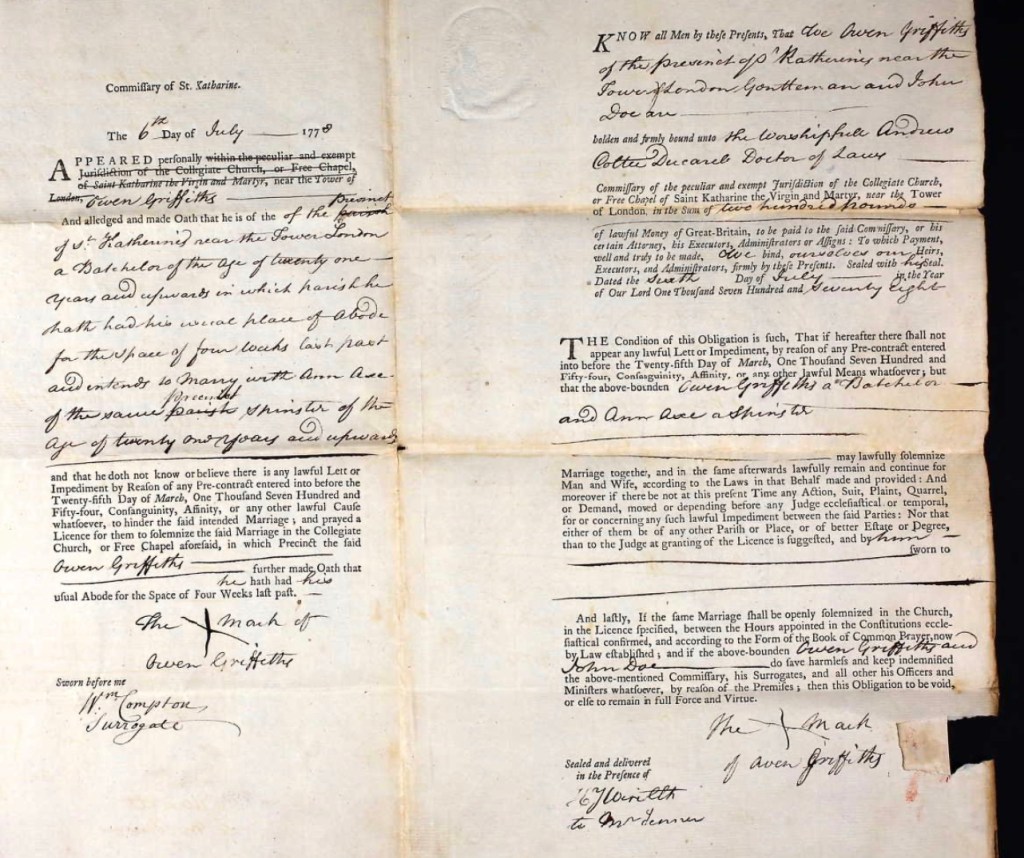 Commiſſary of St. Katharine.
The 6th Day of July 1778
APPEARED perſonally within the peculiar and exempt
Juriſdiction of the Collegiate Church, or Free Chapel,
of Saint Katharine the Virgin and Martyr, near the Tower of
London, Owen Griffiths
Precinct
And alledged and made Oath that he is of the of the pariſh
of St. Katherine's near the Tower London
a Batchelor of the age of twenty one
years and upwards in which parish he
hath had his usual place of Abode
for the space of four Weeks last past
and intends to Marry with Ann Axe
Precinct
of the same parish Spinster of the
Age of twenty one years and upwards
and that he doth not know or believe there is any lawful Lett or
Impediment by Reaſon of any Pre-contract entered into before the
Twenty-fifth Day of March, One Thouſand Seven Hundred and
Fifty-four, Conſanguinity, Affinity, or any other lawful Cauſe
whatſoever, to hinder the ſaid intended Marriage; and prayed a
Licence for them to ſolemnize the ſaid Marriage in the Collegiate
Church, or Free Chapel aforeſaid, in which Precinct the ſaid
Owen Griffiths further made Oath that
he hath had his
uſual Abode for the Space of Four Weeks laſt paſt.
The X Mark of
Owen Griffiths
Sworn before me
Wm Compton
Surrogate
KNOW all Men by theſe Preſents, That We Owen Griffiths
of the precinct of St Katherine's near the
Tower of London Gentleman and John
Doe are
holden and firmly bound unto the Worshipfull Andrew
Coltee Ducarel Doctor of Laws
Commiſſary of the peculiar and exempt Juriſdiction of the Collegiate Church,
or Free Chapel of Saint Katharine the Virgin and Martyr, near the Tower
of London, in the Sum of two hundred pounds
of lawful Money of Great-Britain, to be paid to the ſaid Commiſſary, or his
certain Attorney, his Executors, Adminiſtrators or Aſſigns: To which Payment,
well and truly to be made, We bind, ourselves our Heirs,
Executors, and Adminiſtrators, firmly by theſe Preſents. Sealed with his Seal.
Dated the Sixth Day of July in the Year
of Our Lord One Thouſand Seven Hundred and Seventy Eight
THE Condition of this Obligation is ſuch, That if hereafter there ſhall not
appear any lawful Lett or Impediment, by reaſon of any Pre-contract entered
into before the Twenty-fifth Day of March, One Thouſand Seven Hundred and
Fifty-four, Conſanguinity, Affinity, or any other lawful Means whatſoever; but
that the above-bounden Owen Griffiths a Batchelor
and Ann Axe a Spinster
may lawfully ſolemnize
Marriage together, and in the ſame afterwards lawfully remain and continue for
Man and Wife, according to the Laws in that Behalf made and provided: And
moreover if there be not at this preſent Time any Action, Suit, Plaint, Quarrel,
or Demand, moved or depending before any Judge eccleſiaſtical or temporal,
for or concerning any ſuch lawful Impediment between the ſaid Parties: Nor that
either of them be of any other Pariſh or Place, or of better Eſtate or Degree,
than to the Judge at granting of the Licence is ſuggeſted, and by him
ſworn to
And laſtly, If the ſame Marriage ſhall be openly ſolemnized in the Church,
in the Licence ſpecified, between the Hours appointed in the Conſtitutions eccle-
ſiaſtical confirmed, and according to the Form of the Book of Common Prayer, now
by Law eſtabliſhed; and if the above-bounden Owen Griffiths and
John Doe do ſave harmleſs and keep indemnified
the above-mentioned Commiſſary, his Surrogates, and all other his Officers and
Miniſters whatſoever, by reaſon of the Premiſes; then this Obligation to be void,
or elſe to remain in full Force and Virtue.
The X Mark
of Owen Griffiths
Sealed and delivered
in the Preſence of
to Mr Jenner